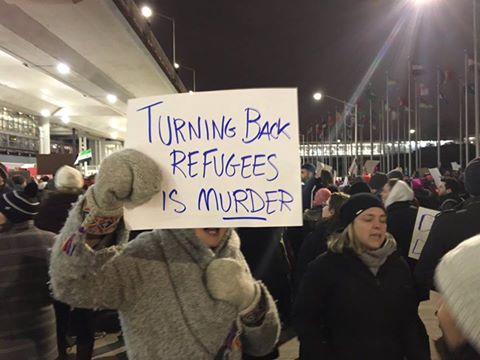 TURNING BACK
REFUGEES
IS MURDER